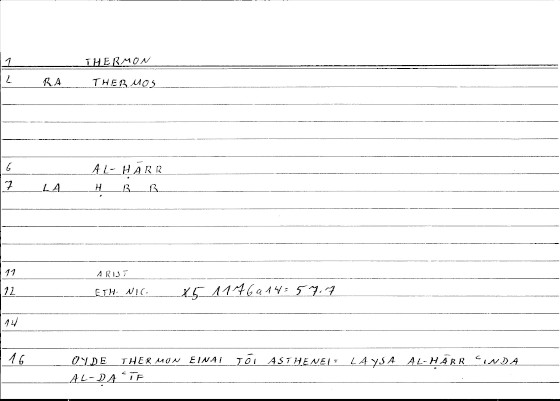 1 THERMON
2 RA THERMOS
6 AL-ḤĀRR
7 LA Ḥ R R
11 ARIST
12 ETH. NIC. X5 1176a14 = 57.7
14
16 OYDE THERMON EINAI TŌI ASTHENEI = LAYSA AL-ḤĀRR ʿINDA
AL-ḌAʿĪF